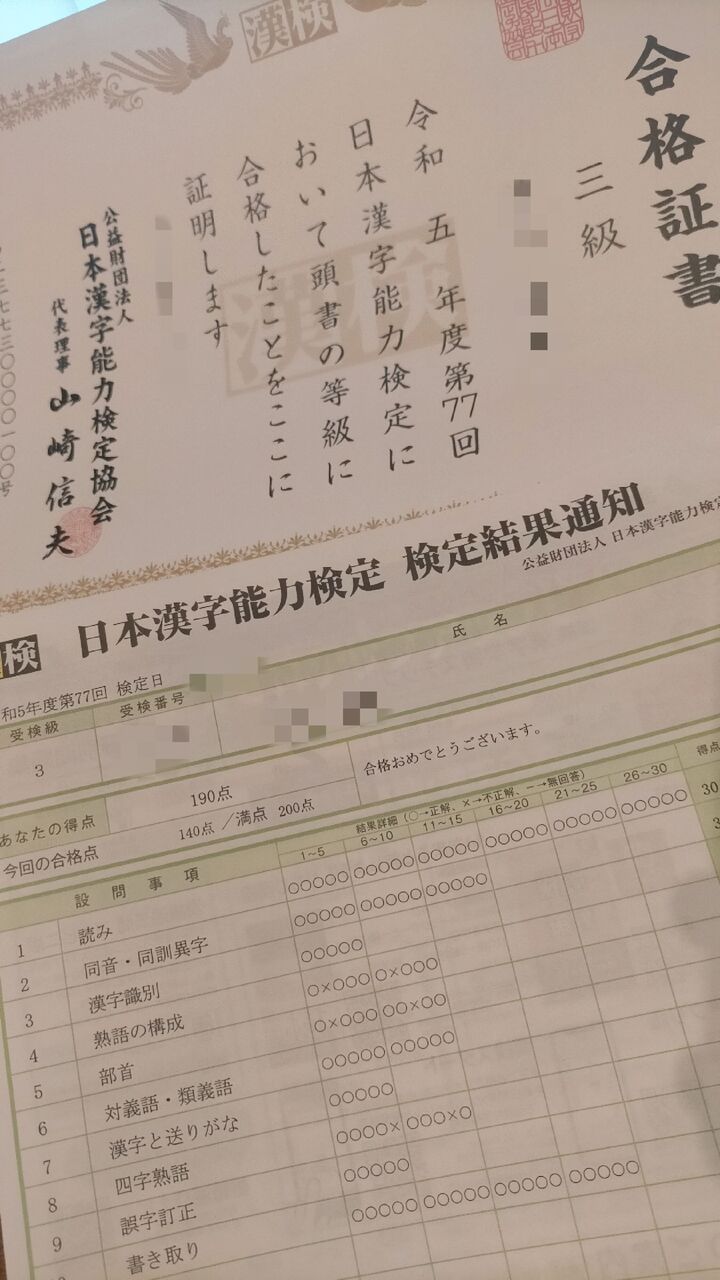 漢検
合格証書
三級
令和五年度第77回
日本漢字能力検定に
おいて頭書の等級に
合格したことをここに
証明します
公益財団法人
日本漢字能力検定協会
代表理事 山崎信夫
漢検
検 日本漢字能力検定 検定結果通知
公益財団法人 日本漢字能力検定
和5年度第77回 検定日
受検級 受検番号 氏名
3
あなたの得点 190点 合格おめでとうございます。
今回の合格点 140点 / 満点 200点
設問事項 結果詳細 (○→正解、×→不正解、−→無回答) 得点
1~5 6~10 11~15 16~20 21~25 26~30
1 読み ○○○○○ ○○○○○ ○○○○○ ○○○○○ ○○○○○ ○○○○○ 30
2 同音・同訓異字 ○○○○○ ○○○○○ ○○○○○ 3
3 漢字識別 ○○○○○
4 熟語の構成 ○×○○○ ○×○○○
5 部首 ○×○○○ ○○×○○
6 対義語・類義語 ○○○○○ ○○○○○
7 漢字と送りがな ○○○○○
8 四字熟語 ○○○○× ○○○×○
9 誤字訂正 ○○○○○
書き取り ○○○○○ ○○○○○ ○○○○○ ○○○○○